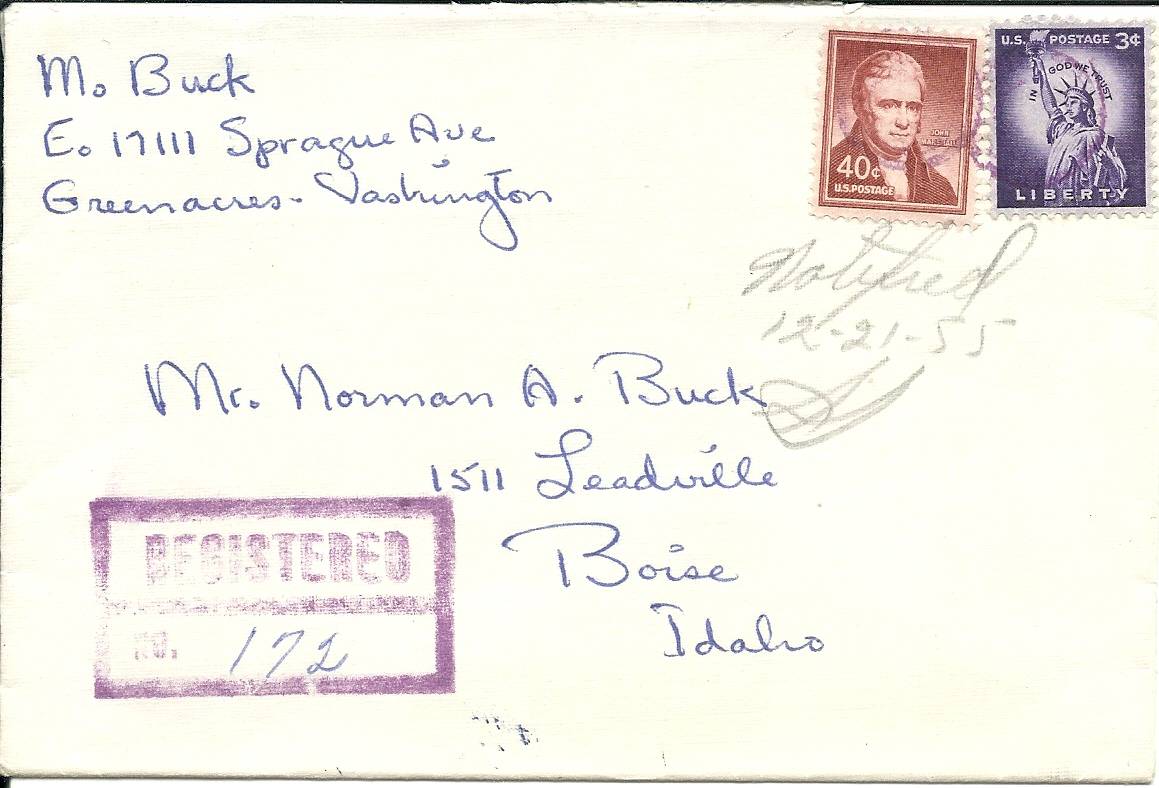 M. Buck
E. 17111 Sprague Ave
Greenacres - Washington
JOHN MARSHALL
40¢
U.S. POSTAGE
U.S. POSTAGE 3¢
IN GOD WE TRUST
LIBERTY
Notified
12-21-55
Mr. Norman A. Buck
1511 Leadville
Boise
Idaho
REGISTERED
NO. 172